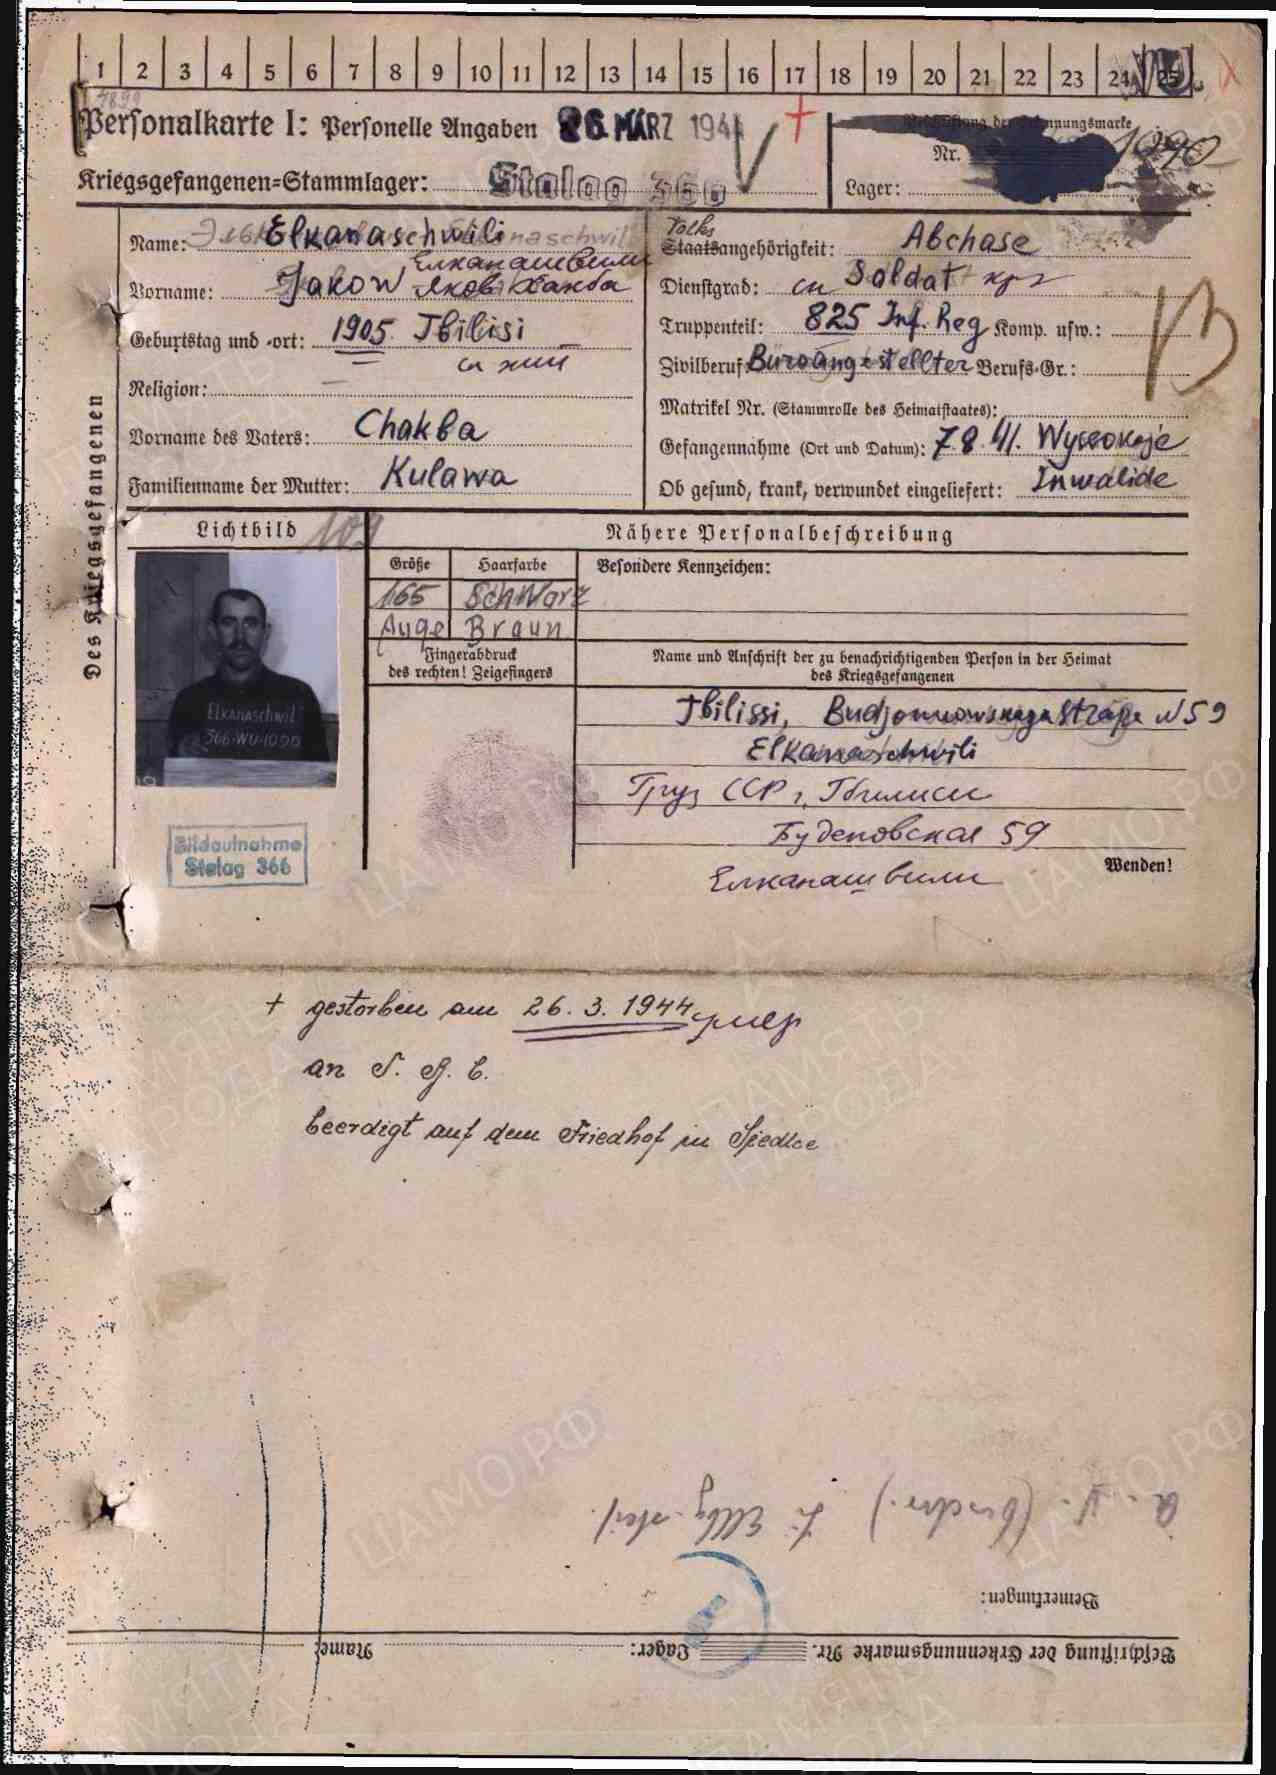 1 2 3 4 5 6 7 8 9 10 11 12 13 14 15 16 17 18 19 20 21 22 23 24 25
Personalkarte I: Personelle Angaben 26. MÄRZ 1944
Beschriftung der Erkennungsmarke
Nr. 1090
Kriegsgefangenen=Stammlager: Stalag 366
Lager:
Des Kriegsgefangenen
Name: Elkanaschwili
Елканашвили
Vorname: Jakow Яков Хакба
Geburtstag und -ort: 1905. Tbilisi
Religion: —
Vorname des Vaters: Chakba
Familienname der Mutter: Kulawa
Volks
Staatsangehörigkeit: Abchase
Dienstgrad: Soldat
Truppenteil: 825 Inf. Reg Komp. usw.:
Zivilberuf: Büroangestellter Berufs-Gr.:
Matrikel Nr. (Stammrolle des Heimatstaates):
Gefangennahme (Ort und Datum): 7.8.41. Wysokoje
Ob gesund, krank, verwundet eingeliefert: Inwalide
Lichtbild 109
Nähere Personalbeschreibung
Größe Haarfarbe Besondere Kennzeichen:
165 Schwarz
Auge Braun
Fingerabdruck
des rechten! Zeigefingers
Name und Anschrift der zu benachrichtigenden Person in der Heimat
des Kriegsgefangenen
ELKANASCHWIL
366-WU-1090
Tbilissi, Budjonnowskaja Straße N 59
Elkanaschwili
Груз ССР г. Тбилиси
Буденовская 59
Елканашвили
Wenden!
Bildaufnahme
Stalag 366
+ gestorben am 26. 3. 1944 умер
an T. b. C.
beerdigt auf dem Friedhof in Siedlce
Bemerkungen:
Beschriftung der Erkennungsmarke Nr. Lager: Name:
ЦАМО.РФ
ПАМЯТЬ НАРОДА